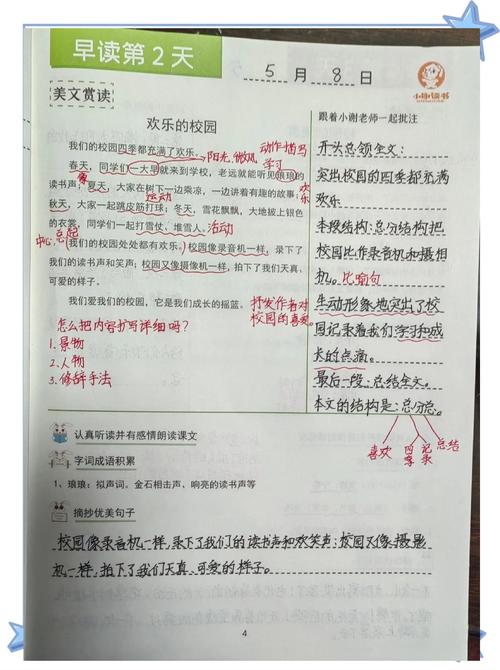 早读第2天
5月8日
小谢读书
美文赏读
欢乐的校园
我们的校园四季都充满了欢乐。
阳光,微风
动作描写
春天,同学们一大早就来到学校,老远就能听见琅琅的
学习
读书声;夏天,大家在树下一边乘凉,一边讲着有趣的故事;
欢乐
秋天,大家一起跳皮筋打球;冬天,雪花飘飘,大地披上银色
运动
的衣裳,同学们一起打雪仗、堆雪人。
活动
中心 总起
我们的校园处处都有欢乐。校园像录音机一样,录下了
我们的读书声和笑声;校园又像摄像机一样,拍下了我们天真、
可爱的样子。
我们爱我们的校园,它是我们成长的摇篮。
抒发作者对
校园的喜爱
怎么把内容扩写详细吗?
1.景物
2.人物
3.修辞手法
跟着小谢老师一起批注
开头点领全文:
突出校园的四季都充满
欢乐
本段结构:总分结构把
校园比作录音机和摄相
机。比喻句
生动形象地突出了校
园记录着我们学习和成
长的点滴。
最后一段:总结全文。
本文的结构是:总分总。
喜欢
四季
记录
总结
认真听读并有感情朗读课文
字词成语积累
1、琅琅:拟声词。金石相击声、响亮的读书声等
摘抄优美句子
校园像录音机一样,录下了我们的读书声和欢笑声;校园又像摄影
机一样,拍下了我们天真、可爱的样子。
4